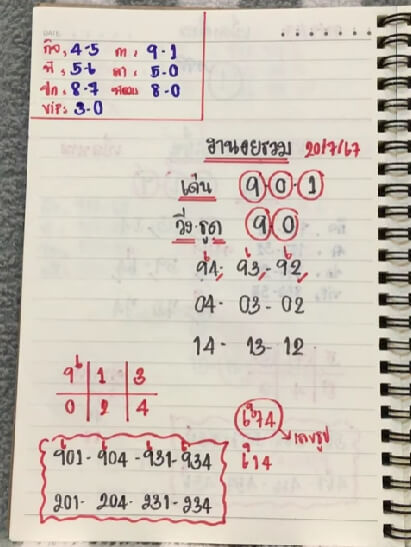 DATE
กิจ, 4-5 ภา : 9-1
พี : 5-6 ดา : 5-0
8-7 8-0
vip: 3-0
ฮานอยรวม 20/7/67
เด่น 9 0 1
วิ่ง รูด 9 0
94- 93- 92
04- 03- 02
14- 13- 12
9 1 3
0 2 4
674
เลขธูป
614
901- 904- 931- 934
201- 204- 231- 234